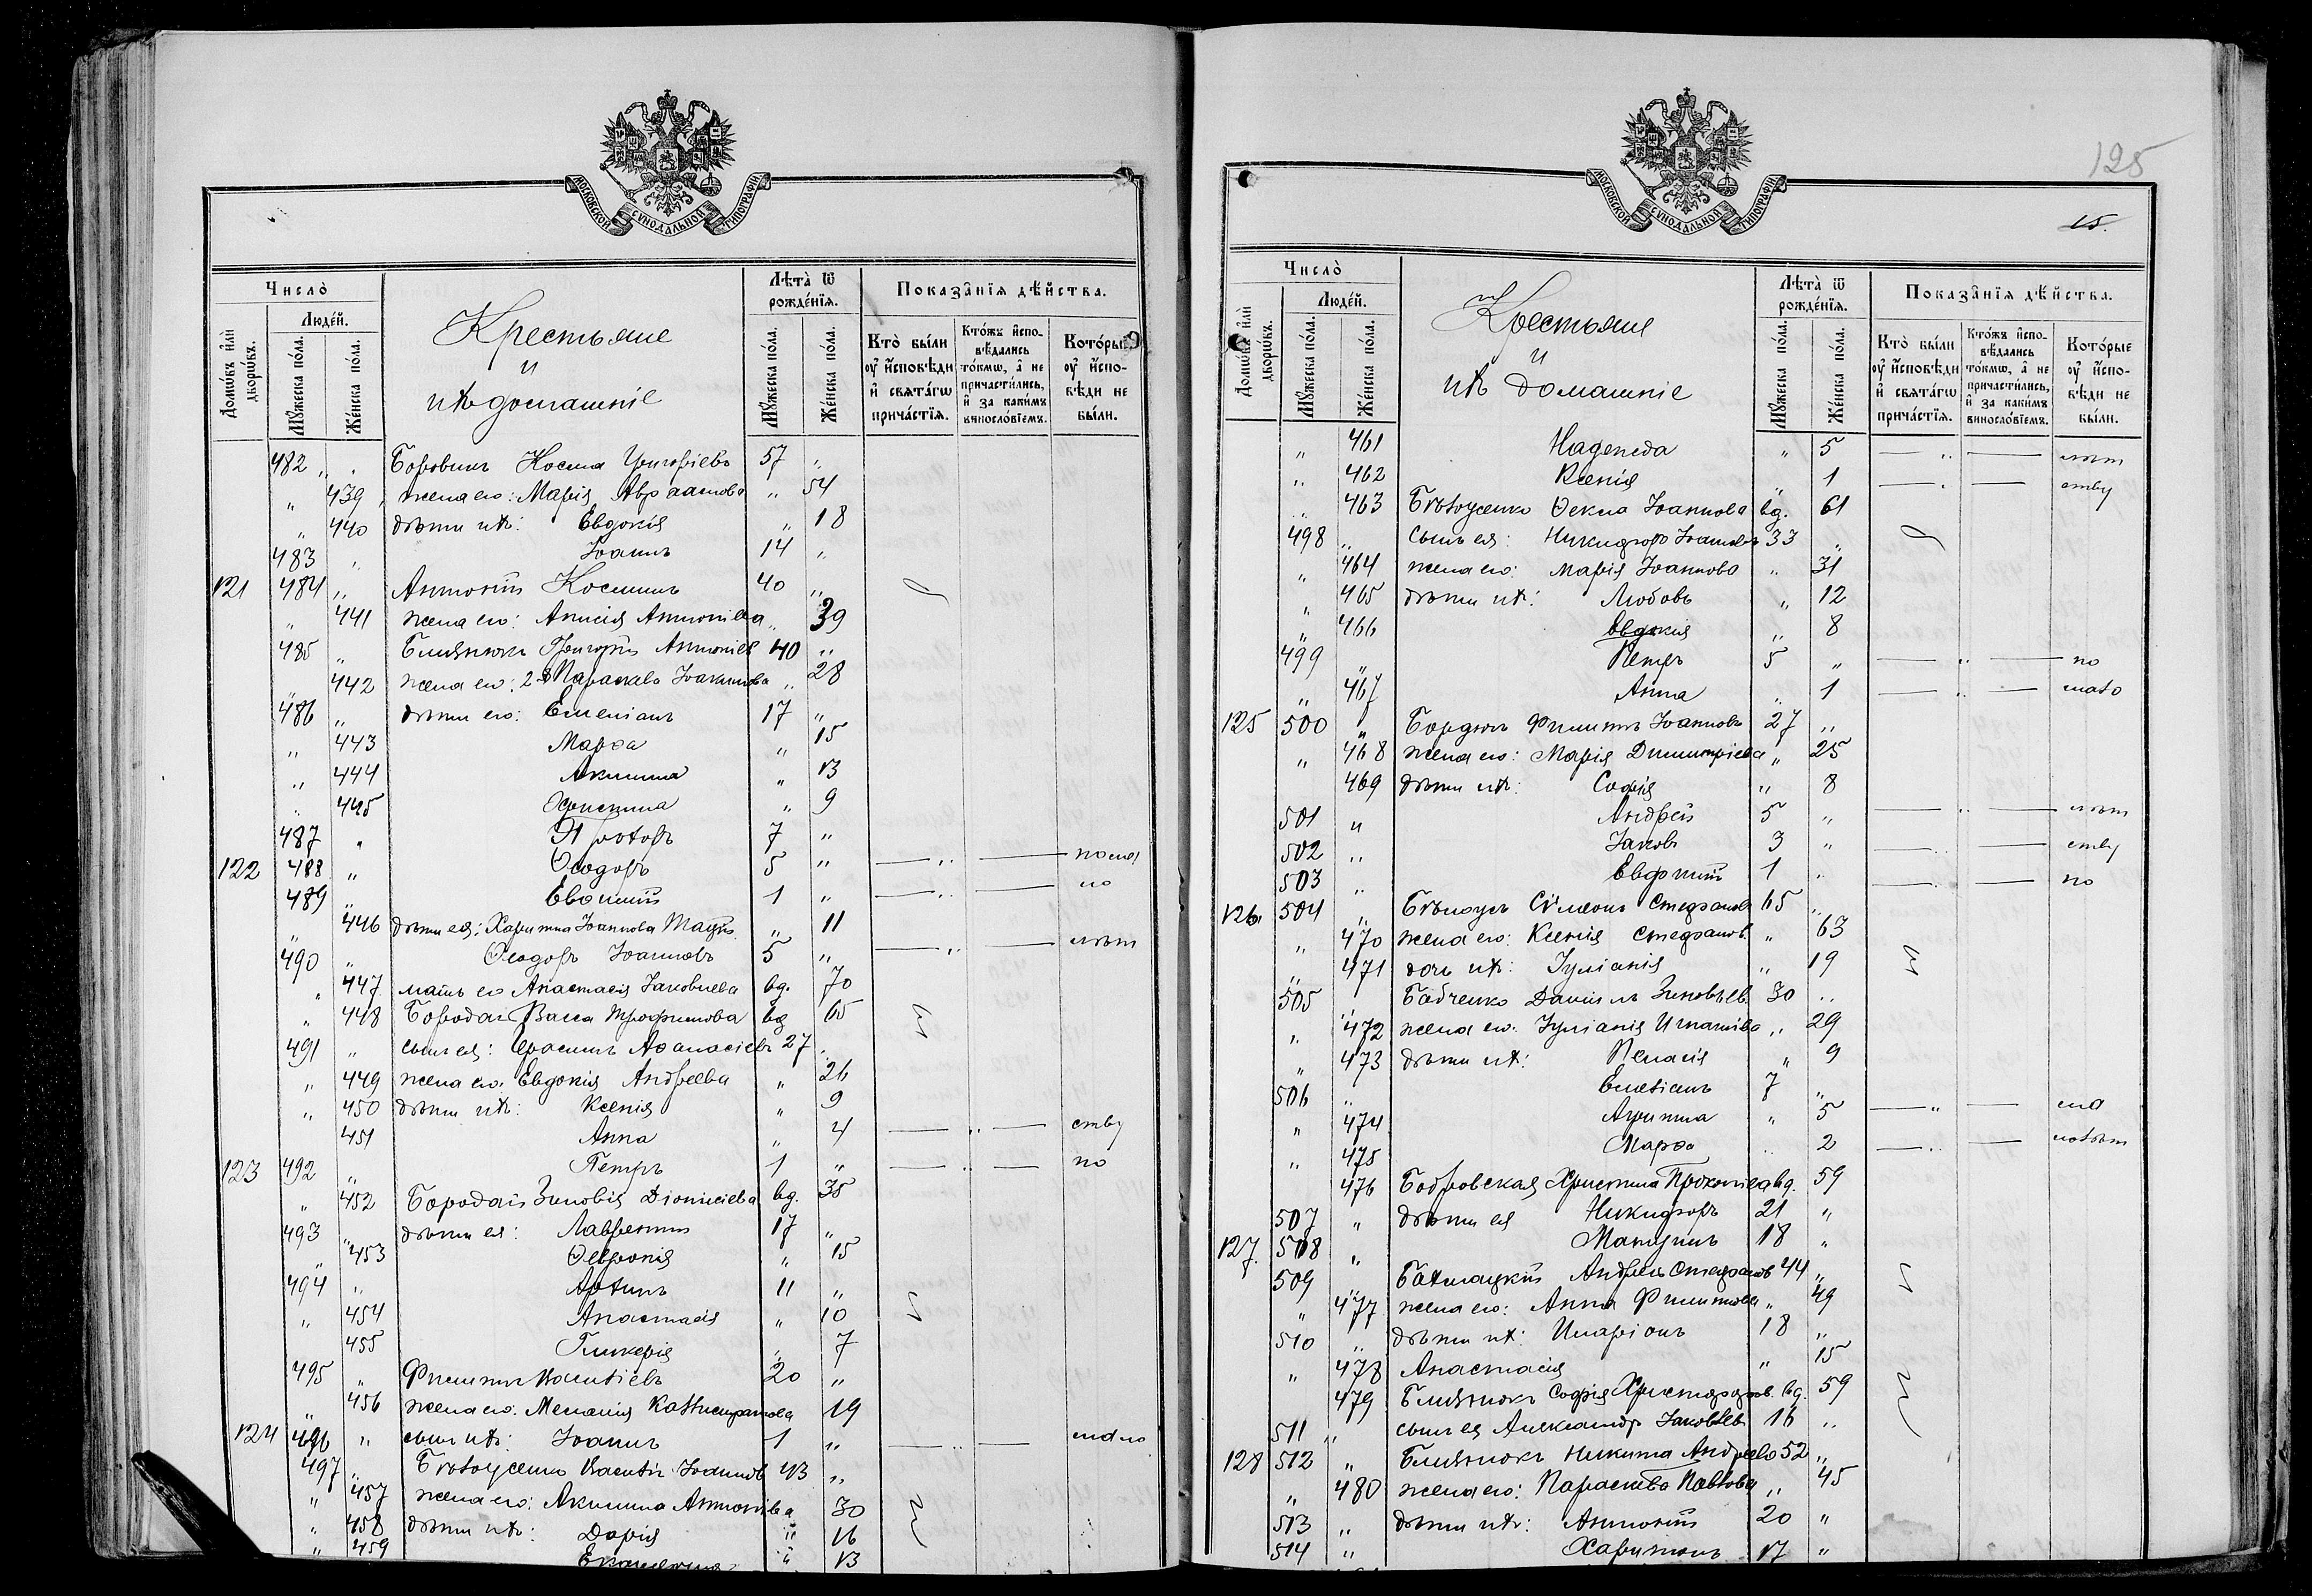 МОСКОВСКОЙ СѴНОДАЛЬНОЙ ТИПОГРАФІИ
Число̀
Домѡ́въ и҆лѝ дворѡ́въ.
Люде́й.
Мꙋ́жеска по́ла.
Же́нска по́ла.
Крестьяне
и
ихъ домашніе
Лѣта̀ ѿ рожде́нїѧ.
Мꙋ́жеска по́ла.
Же́нска по́ла.
Показа̑нїѧ дѣ́йства.
Кто̀ были ᲂу҆ и҆сповѣди и҆ свѧта́гѡ прича́стїѧ.
Кто́жъ и҆спо-вѣдались то́кмѡ, а҆ не причасти́лись, и҆ за каки́мъ винословїемъ.
Кото́рые ᲂу҆ и҆спо-вѣди не бы́ли.
482 „ „ Боровикъ Косма Григоріевъ 57 „
„ 439 жена его: Марія Авраамова „ 54
„ 440 дѣти ихъ: Евдокія „ 18
483 „ Іоаннъ 14 „
121 484 „ Антоній Косминъ 40 „
„ 441 жена его: Анисія Антоніева „ 39
485 „ Близнюкъ Григорій Антоніев 40 „
„ 442 жена его: 2-я Параскева Іоакимова „ 28
486 „ дѣти его: Емеліанъ 17 „
„ 443 Марѳа „ 15
„ 444 Акилина „ 13
„ 445 Христина „ 9
487 „ 7 „
122 488 „ Ѳеодоръ 5 „ — „ —
489 „ Евѳимій 1 „ — „ — по
„ 446 дѣти ея: Харитина Іоаннова „ 11
490 „ Ѳеодоръ Іоанновъ 5 „ — „ — лѣт
„ 447 мать его Анастасія Іаковлева вд. 70
„ 448 Бородай Васса Трофимова вд 65
491 „ сынъ ея: Герасимъ Аѳанасіевъ 27 „
„ 449 жена его. Евдокія Андреева „ 26
„ 450 дѣти ихъ: Ксенія „ 9
451 Анна „ 4 — „ — ству
123 492 „ Петръ 1 „ — „ — по
„ 452 Бородай Зиновія Діонисіева вд. 35
493 „ дѣти ея: Лаврентій 17 „
„ 453 Ѳевронія „ 15
494 „ 11 „
„ 454 Анастасія „ 10
455 Гликерія „ 7
495 „ Филиппъ Василіевъ 20 „
„ 456 жена его. Меланія Каллистратова 19
124 496 „ сынъ ихъ: Іоаннъ 1 „ — „ —
497 „ Бѣлоусенко Василій Іоаннов 43 „
„ 457 жена его: Акилина Антоніева 30
„ 458 дѣти ихъ: Дарія „ 16
„ 459 Екатерина „ 13
125
15.
МОСКОВСКОЙ СѴНОДАЛЬНОЙ ТИПОГРАФІИ
Число̀
Домѡ́въ и҆лѝ дворѡ́въ.
Люде́й.
Мꙋ́жеска по́ла.
Же́нска по́ла.
Крестьяне
и
ихъ домашніе
Лѣта̀ ѿ рожде́нїѧ.
Мꙋ́жеска по́ла.
Же́нска по́ла.
Показа̑нїѧ дѣ́йства.
Кто̀ были ᲂу҆ и҆сповѣди и҆ свѧта́гѡ прича́стїѧ.
Кто́жъ и҆спо-вѣдались то́кмѡ, а҆ не причасти́лись, и҆ за каки́мъ винословїемъ.
Кото́рые ᲂу҆ и҆спо-вѣди не бы́ли.
„ 461 Надежда „ 5 — „ — лѣт
„ 462 Ксенія „ 1 — „ — ству
„ 463 Бѣлоусенко Ѳекла Іоаннова вд. 61
498 „ сынъ ея: Никифоръ Іоаннов 33 „
„ 464 жена его: Марія Іоаннова „ 31
„ 465 дѣти ихъ: Любовь „ 12
„ 466 Евдокія „ 8
499 „ Петръ 5 „ — „ — по
„ 467 Анна „ 1 — „ — мало
125 500 „ Бордюгъ Филиппъ Іоанновъ 27 „
„ 468 жена его: Марія Димитріева „ 25
469 дѣти ихъ: Софія „ 8
501 „ Андрей 5 „ — „ — лѣт
502 „ Іаковъ 3 „ — „ — ству
503 „ Евдокимъ 1 „ — „ — по
126. 504 „ Бѣлоусъ Сѵмеонъ Стефанов 65 „
„ 470 жена его: Ксенія Стефанов. „ 63
„ 471 дочь ихъ: Іуліанія „ 19
505 „ Бабченко Даніилъ Зиновьев 30 „
„ 472 жена его. Іуліанія Игнатіева „ 29
„ 473 дѣти ихъ: Пелагія „ 9
506 „ Емеліанъ 7 „
„ 474 „ 5 — „ —
„ 475 Марѳа „ 2 — „ —
476 Бобровская Христина Прокопіева вд. 59
507 „ дѣти ея Никифоръ 21 „
127. 508 „ 18 „
509 „ Андрей Стефанов 44 „
„ 477 жена его: Анна Филиппова „ 49
510 „ дѣти ихъ: Иларіонъ 18 „
„ 478 Анастасія „ 15
479 Близнюкъ Софія Христофоров. вд. 59
511 „ сынъ ея Александръ Іаковлев 16 „
128 512 „ Близнюкъ Никита Андреев 52 „
„ 480 жена его: Параскева Павлова „ 45
513 „ дѣти ихъ: Антоній 20 „
514 „ Харитонъ 17 „